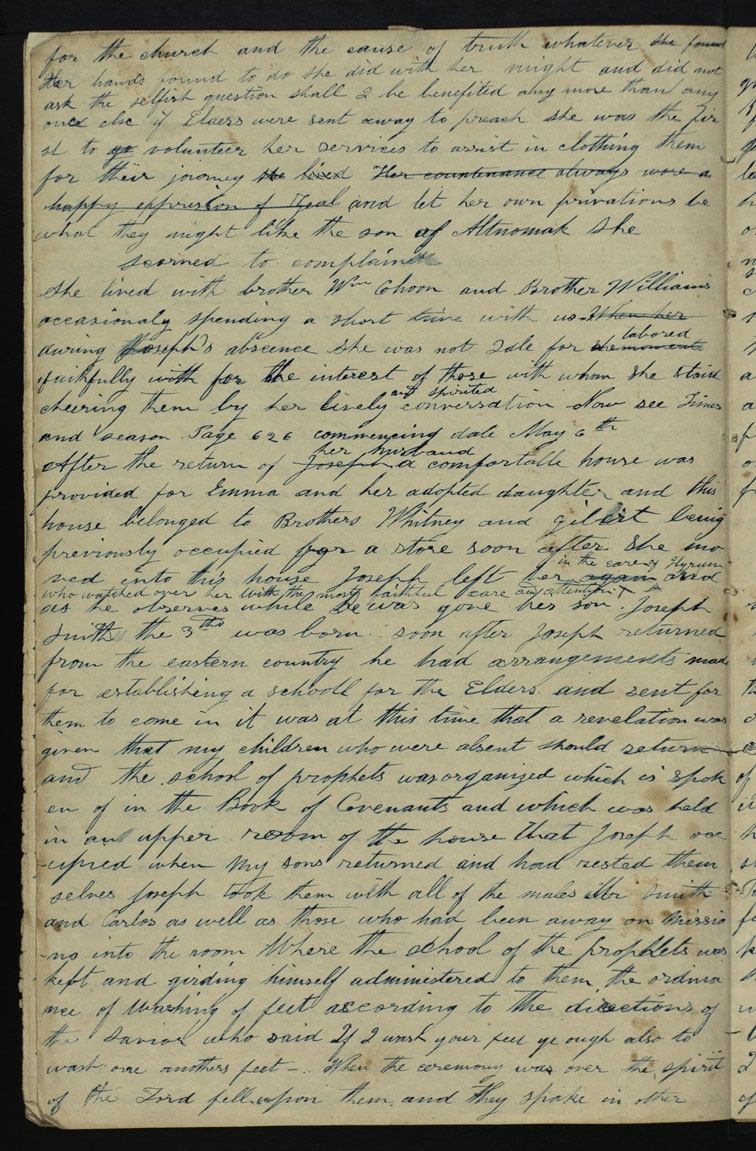 for the church and the cause of truth whatever she found
Her hands found to do she did with her might and did not
ask the selfish question shall I be benefited any more than any
one else if Elders were sent away to preach she was the fir
st to go volunteer her services to assist in clothing them
for their journey she lived Her countenance always wore a
happy expression of Zeal and let her own privations be
what they might like the son of Altnomak She
scorned to complain
She lived with brother Wm Cohoon and Brother Williams
occasionaly spending a short time with us When her
during Joseph's abscence she was not Idle for she labored
moments
faithfully with for the interest of those with whom she staid
cheering them by her lively and spirited conversation Now see Times
and season Page 626 commencing date May 6th
After the return of Joseph her husband a comfortable house was
provided for Emma and her adopted daughter and this
house belonged to Brothers Whitney and Gilbert being
previously occupied for a store soon after she mo
ved into this house Joseph left her again in the care of Hyrum and
who watched over her with the most faithful care and attention
as he observes while he was gone her son Joseph
Smith the 3rd was born soon after Joseph returned
from the eastern country he had arrangements mad
for establishing a schooll for the Elders and sent for
them to come in it was at this time that a revelation was
given that my children who were absent should return
and the school of prophets was organized which is spok
en of in the Book of Covenants and which was held
in an upper room of the house that Joseph occ
-upied when My sons returned and had rested them
selves Joseph took them with all of the males Mr Smith
and Carlos as well as those who had been away on missio
-ns into the room Where the school of the prophets was
kept and girding himself administered to them the ordina
nce of washing of feet according to the directions of
the Savior who said If I wash your feet ye ough also to
wash one anothers feet -. When the ceremony was over the spirit
of the Lord fell upon them and they spoke in other